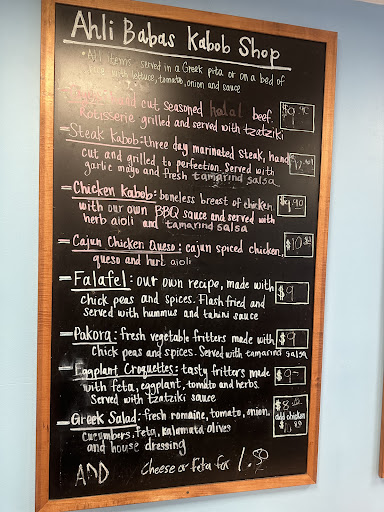 Ahli Babas Kabob Shop
• All items served in a Greek pita or on a bed of
with lettuce, tomato, onion and sauce
hand cut, seasoned halal beef. $9.90
Rotisserie grilled and served with tzatziki
Steak Kabob: three day marinated steak, hand
cut and grilled to perfection. Served with
garlic mayo and fresh tamarind salsa
Chicken Kabob: boneless breast of chicken $9.90
with our own BBQ sauce and served with
herb aioli and tamarind salsa
Cajun Chicken Queso: cajun spiced chicken, $10
queso and hurb aioli
Falafel: our own recipe, made with $9
chick peas and spices. Flash fried and
served with hummus and tahini sauce
Pakora: fresh vegetable fritters made with $9
chick peas and spices. Served with tamarind salsa
Eggplant Croquettes: tasty fritters made $9
with feta, eggplant, tomato and herbs.
Served with tzatziki sauce
Greek Salad: fresh romaine, tomato, onion, $8
cucumbers, feta, kalamata olives add chicken
and house dressing
ADD cheese or feta for 1.50